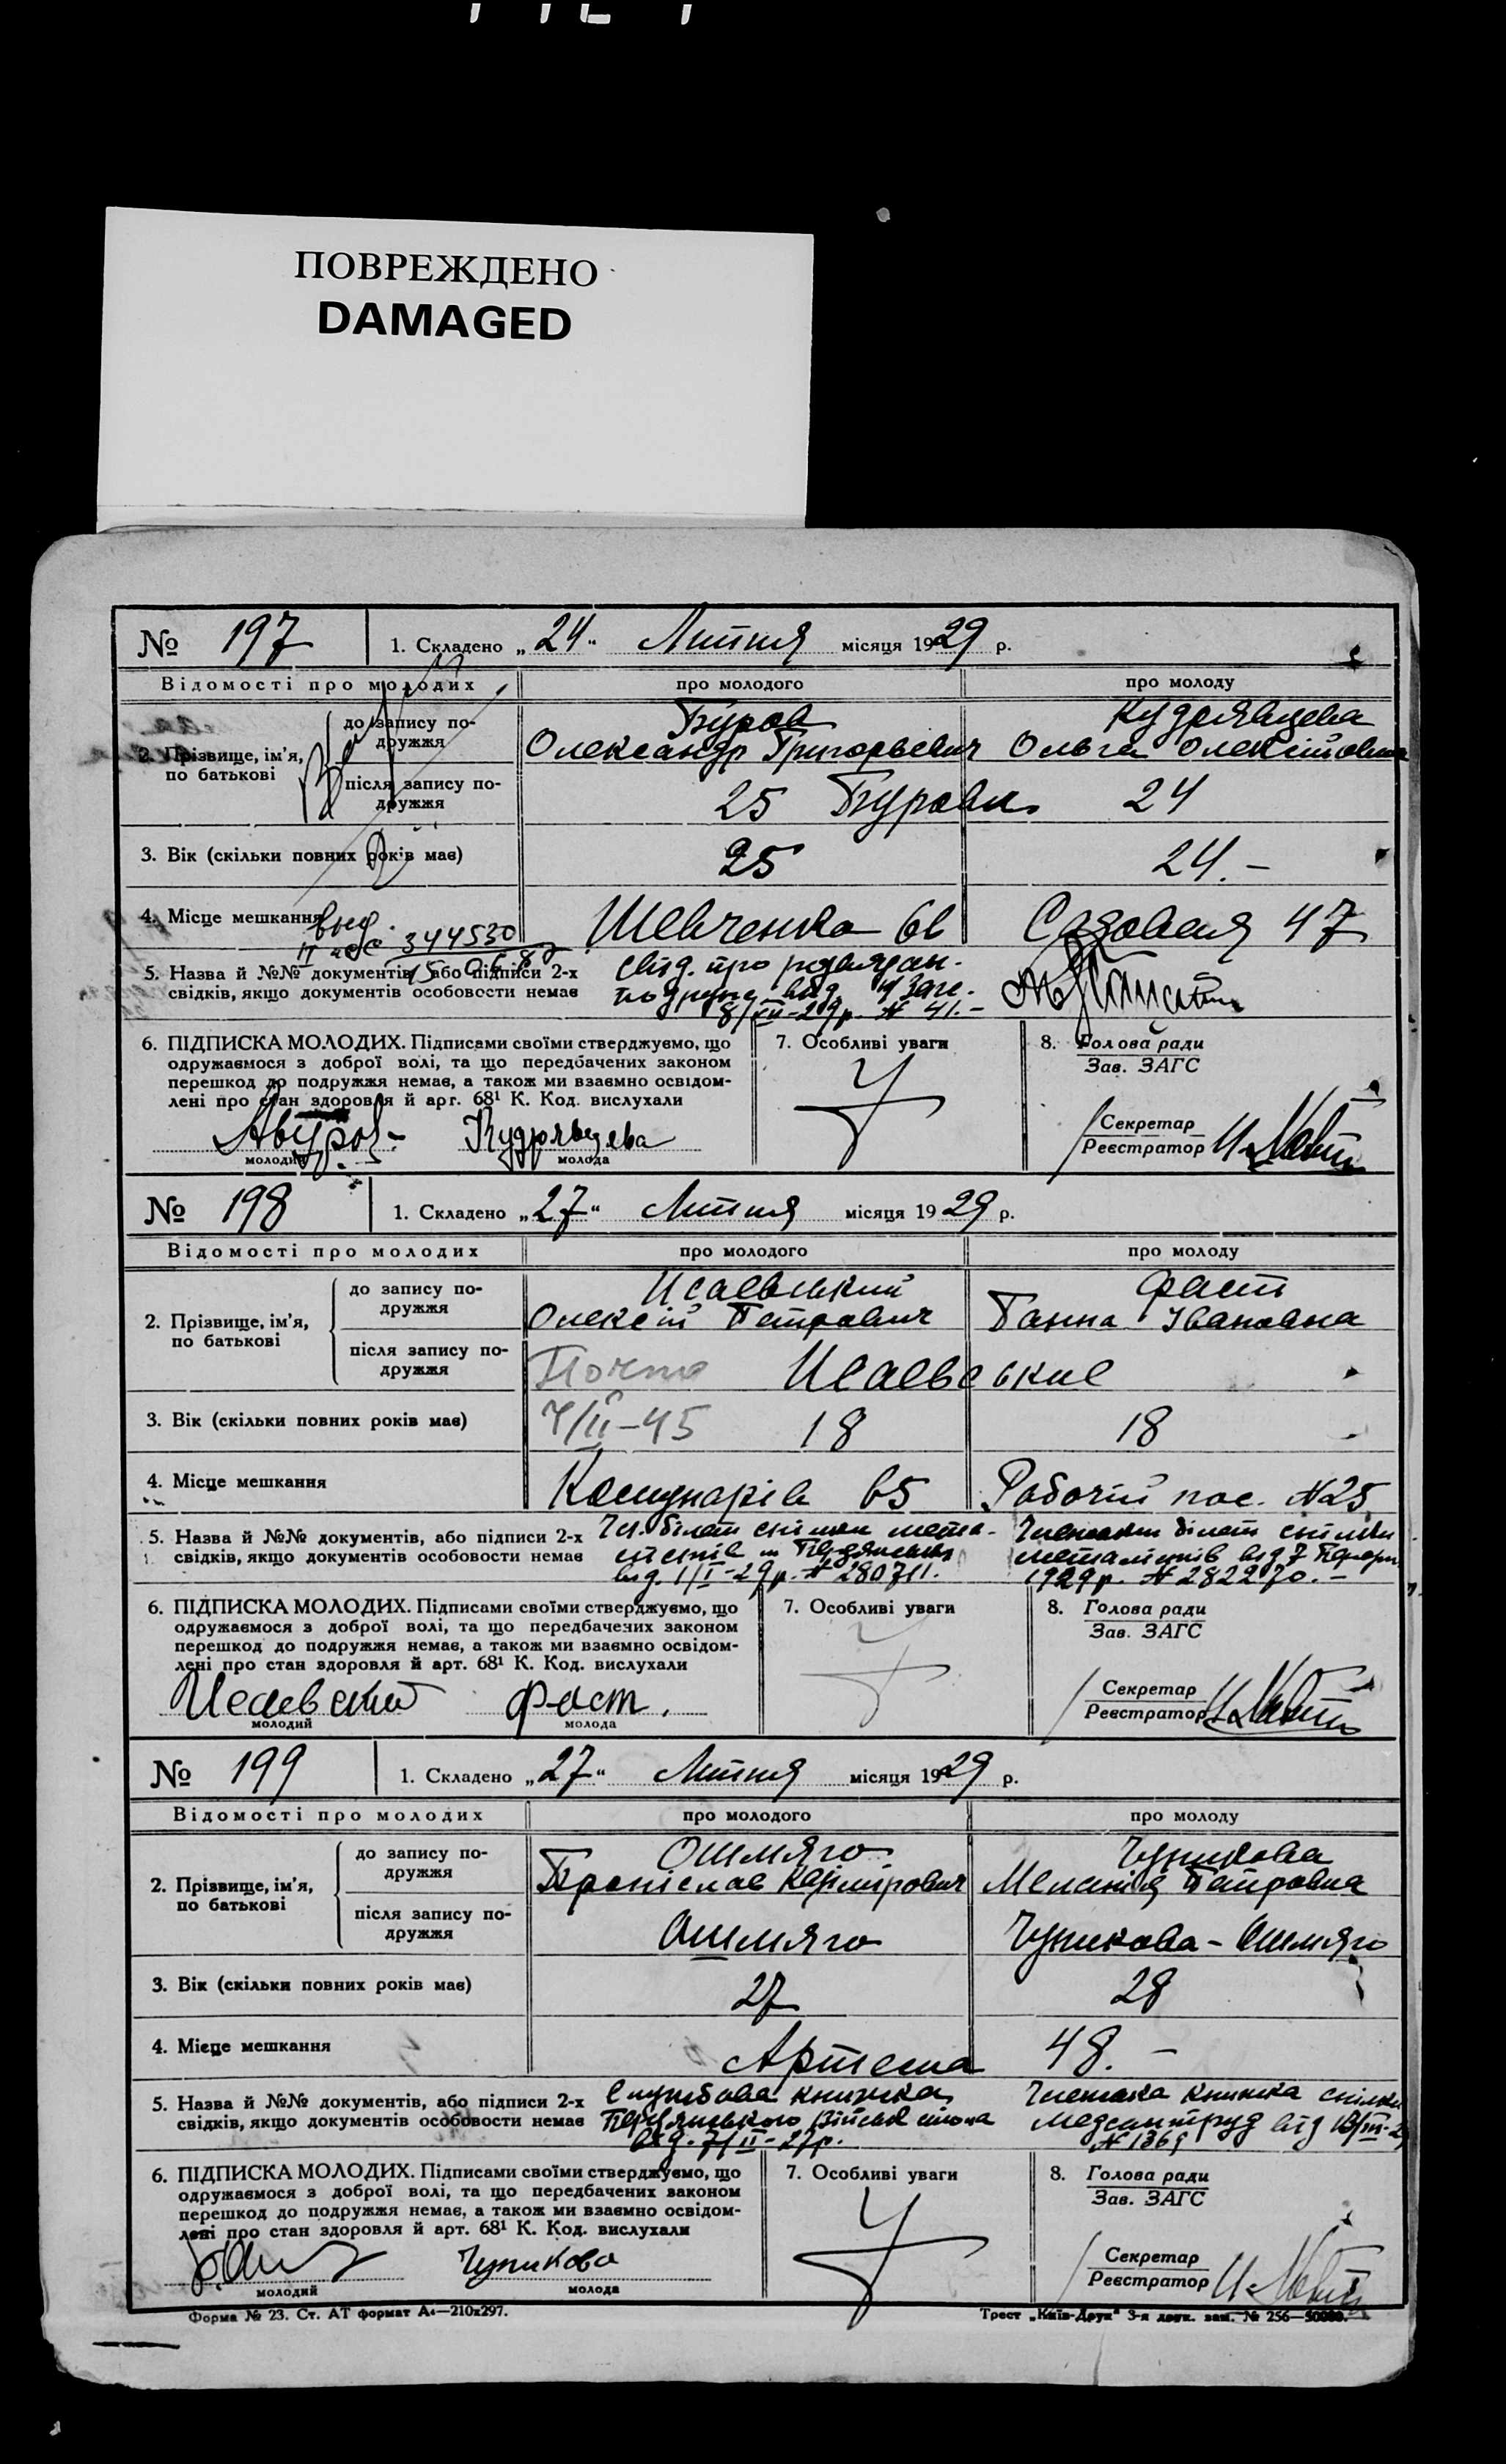 ПОВРЕЖДЕНО
DAMAGED
№ 197 1. Складено „24“ Липня місяця 1929 р.
Відомості про молодих про молодого про молоду
2. Прізвище, ім'я, по батькові
до запису подружжя
Буров Кудрявцева
Олександр Григорьевич Ольга Олексіївна
після запису подружжя
25 Буров 24
3. Вік (скільки повних років має) 25 24.-
4. Місце мешкання Шевченка 66 Садовая 47
выд.
344530
5. Назва й №№ документів, або підписи 2-х
свідків, якщо документів особовости немає
свід. про
8/XII-29р. № 41.-
6. ПІДПИСКА МОЛОДИХ. Підписами своїми стверджуємо, що
одружаємося з доброї волі, та що передбачених законом
перешкод до подружжя немає, а також ми взаємно освідом-
лені про стан здоровля й арт. 68¹ К. Код. вислухали
Кудрявцева
молодий молода
7. Особливі уваги
8. Голова ради
Зав. ЗАГС
Секретар
Реєстратор
№ 198 1. Складено „27“ Липня місяця 1929 р.
Відомості про молодих про молодого про молоду
2. Прізвище, ім'я, по батькові
до запису подружжя
Исаевський Фаст
Олексій Петрович Ганна Івановна
після запису подружжя
Почта Исаевські
3. Вік (скільки повних років має) 7/II-45 18 18
4. Місце мешкання Комунарів 65 Робочій пос. №25
5. Назва й №№ документів, або підписи 2-х
свідків, якщо документів особовости немає
Чл. білет спілки мета-
від. 1/I-29р. № 280711.
білет спілки
металістів від 7
1929р. № 282270.-
6. ПІДПИСКА МОЛОДИХ. Підписами своїми стверджуємо, що
одружаємося з доброї волі, та що передбачених законом
перешкод до подружжя немає, а також ми взаємно освідом-
лені про стан здоровля й арт. 68¹ К. Код. вислухали
Исаевский Фаст.
молодий молода
7. Особливі уваги
8. Голова ради
Зав. ЗАГС
Секретар
Реєстратор
№ 199 1. Складено „27“ Липня місяця 1929 р.
Відомості про молодих про молодого про молоду
2. Прізвище, ім'я, по батькові
до запису подружжя
Ошмяго Чупикова
Броніслав Казімірович Меланія Петровна
після запису подружжя
Ошмяго Чупикова-Ошмяго
3. Вік (скільки повних років має) 27 28
4. Місце мешкання Артема 48.-
5. Назва й №№ документів, або підписи 2-х
свідків, якщо документів особовости немає
Службова книжка
від. 7/II-27р.
Членська книжка спілки
Медсантруд від
6. ПІДПИСКА МОЛОДИХ. Підписами своїми стверджуємо, що
одружаємося з доброї волі, та що передбачених законом
перешкод до подружжя немає, а також ми взаємно освідом-
лені про стан здоровля й арт. 68¹ К. Код. вислухали
Чупикова
молодий молода
7. Особливі уваги
8. Голова ради
Зав. ЗАГС
Секретар
Реєстратор
Форма № 23. Ст. АТ формат А₄—210х297. Трест „Київ-Друк“ 3-я друк. зам. № 256—50000.